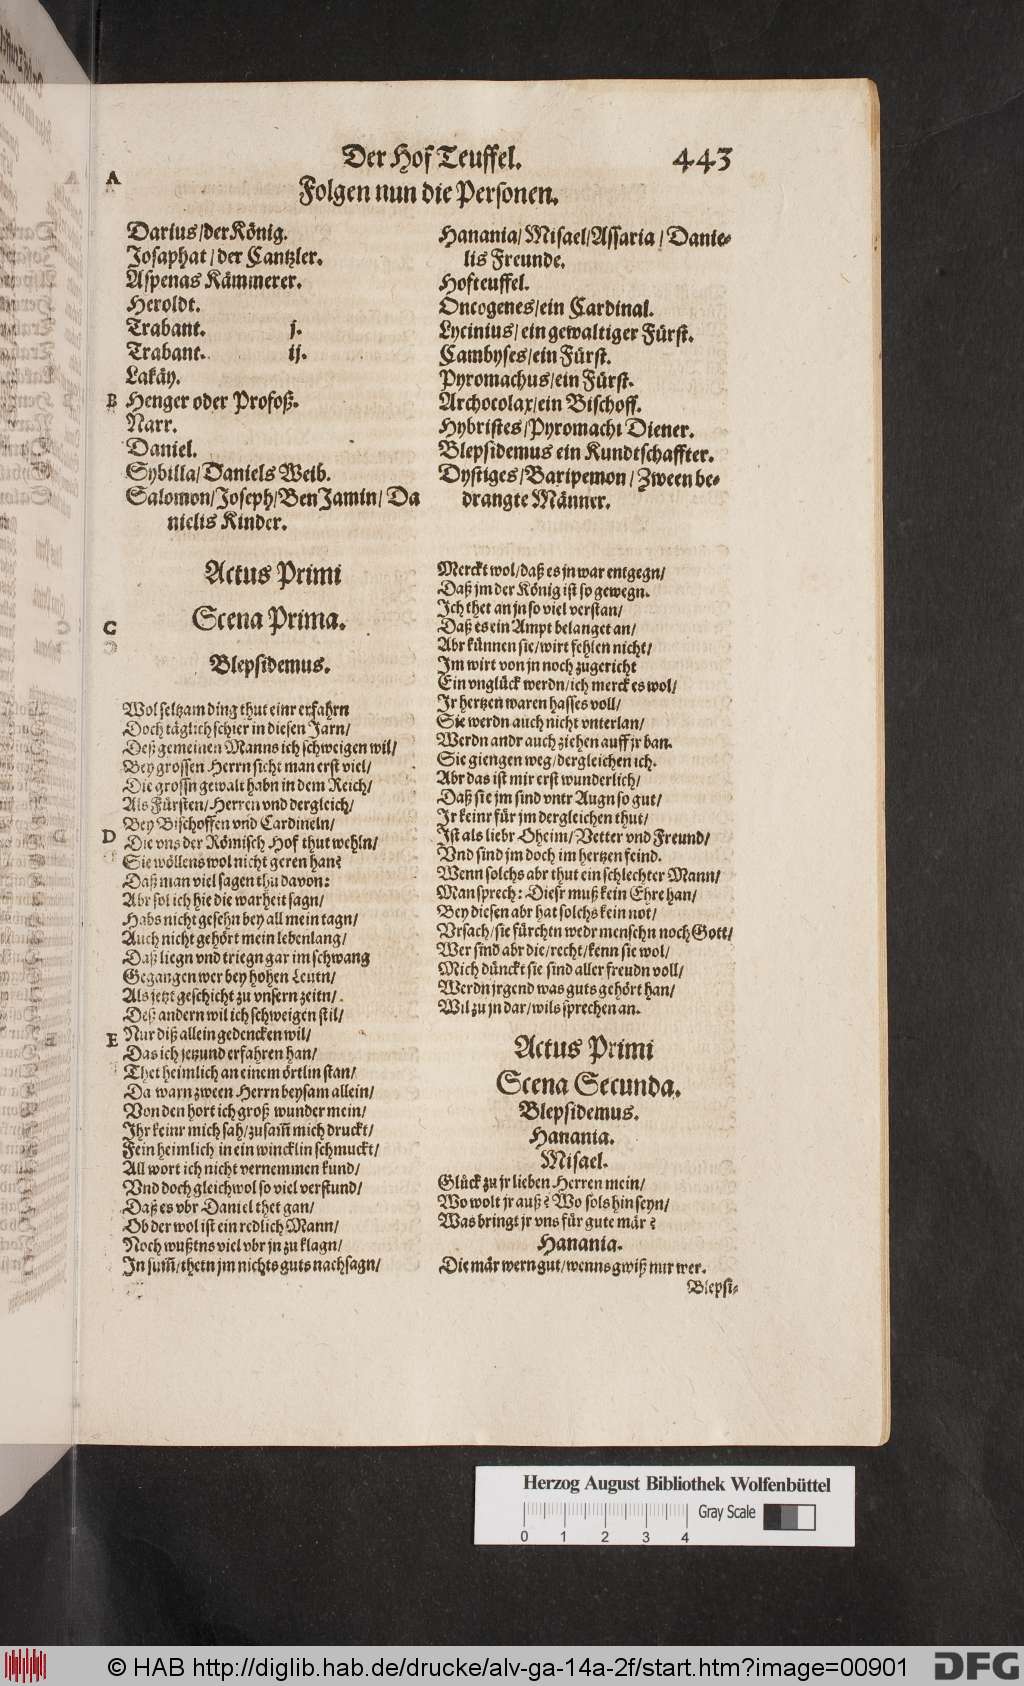 Der Hof Teuffel. 443
A
Folgen nun die Personen.
Darius/der König.
Josaphat/der Cantzler.
Aspenas Kämmerer.
Heroldt.
Trabant. j.
Trabant. ij.
Lakäy.
B
Henger oder Profoß.
Narr.
Daniel.
Sybilla/Daniels Weib.
Salomon/Joseph/BenJamin/Da
nielis Kinder.
Hanania/Misael/Assaria/Danie-
lis Freunde.
Hofteuffel.
Oncogenes/ein Cardinal.
Lycinius/ein gewaltiger Fürst.
Cambyses/ein Fürst.
Pyromachus/ein Fürst.
Archocolax/ein Bischoff.
Hybristes/Pyromachi Diener.
Blepsidemus ein Kundtschaffter.
Dystiges/Baripemon/Zween be-
drangte Männer.
Actus Primi
C
Scena Prima.
Blepsidemus.
Wol seltzam ding thut einr erfahrn
Doch täglich schier in diesen Jarn/
Deß gemeinen Manns ich schweigen wil/
Bey grossen Herrn sicht man erst viel/
Die grossn gewalt habn in dem Reich/
Als Fürsten/Herren vnd dergleich/
Bey Bischoffen vnd Cardineln/
D
Die vns der Römisch Hof thut wehln/
Sie wöllens wol nicht geren han?
Daß man viel sagen thu davon:
Abr sol ich hie die warheit sagn/
Habs nicht gesehn bey all mein tagn/
Auch nicht gehört mein lebenlang/
Daß liegn vnd triegn gar im schwang
Gegangen wer bey hohen Leutn/
Als jetzt geschicht zu vnsern zeitn/
Deß andern wil ich schweigen stil/
E
Nur diß allein gedencken wil/
Das ich jetzund erfahren han/
Thet heimlich an einem örtlin stan/
Da warn zween Herrn beysam allein/
Von den hort ich groß wunder mein/
Ihr keinr mich sah/zusam̃ mich druckt/
Fein heimlich in ein wincklin schmuckt/
All wort ich nicht vernemmen kund/
Vnd doch gleichwol so viel verstund/
Daß es vbr Daniel thet gan/
Ob der wol ist ein redlich Mann/
Noch wußtns viel vbr jn zu klagn/
In sum̃/thetn jm nichts guts nachsagn/
Merckt wol/daß es jn war entgegn/
Daß jm der König ist so gewegn.
Ich thet an jn so viel verstan/
Daß es ein Ampt belanget an/
Abr künnen sie/wirt fehlen nicht/
Im wirt von jn noch zugericht
Ein vnglück werdn/ich merck es wol/
Ir hertzen waren hasses voll/
Sie werdn auch nicht vnterlan/
Werdn andr auch ziehen auff jr ban.
Sie giengen weg/dergleichen ich.
Abr das ist mir erst wunderlich/
Daß sie jm sind vntr Augn so gut/
Ir keinr für jm dergleichen thut/
Ist als liebr Oheim/Vetter vnd Freund/
Vnd sind jm doch im hertzen feind.
Wenn solchs abr thut ein schlechter Mann/
Man sprech: Diesr muß kein Ehre han/
Bey diesen abr hat solchs kein not/
Vrsach/sie fürchtn wedr menschn noch Gott/
Wer sind abr die/recht/kenn sie wol/
Mich dünckt sie sind aller freudn voll/
Werdn jrgend was guts gehört han/
Wil zu jn dar/wils sprechen an.
Actus Primi
Scena Secunda.
Blepsidemus.
Hanania.
Misael.
Glück zu jr lieben Herren mein/
Wo wolt jr auß? Wo sols hin seyn/
Was bringt jr vns für gute mär?
Hanania.
Die mär wern gut/wenns gwiß nur wer.
Blepsi-
Herzog August Bibliothek Wolfenbüttel
0 1 2 3 4
Gray Scale
© HAB http://diglib.hab.de/drucke/alv-ga-14a-2f/start.htm?image=00901
DFG